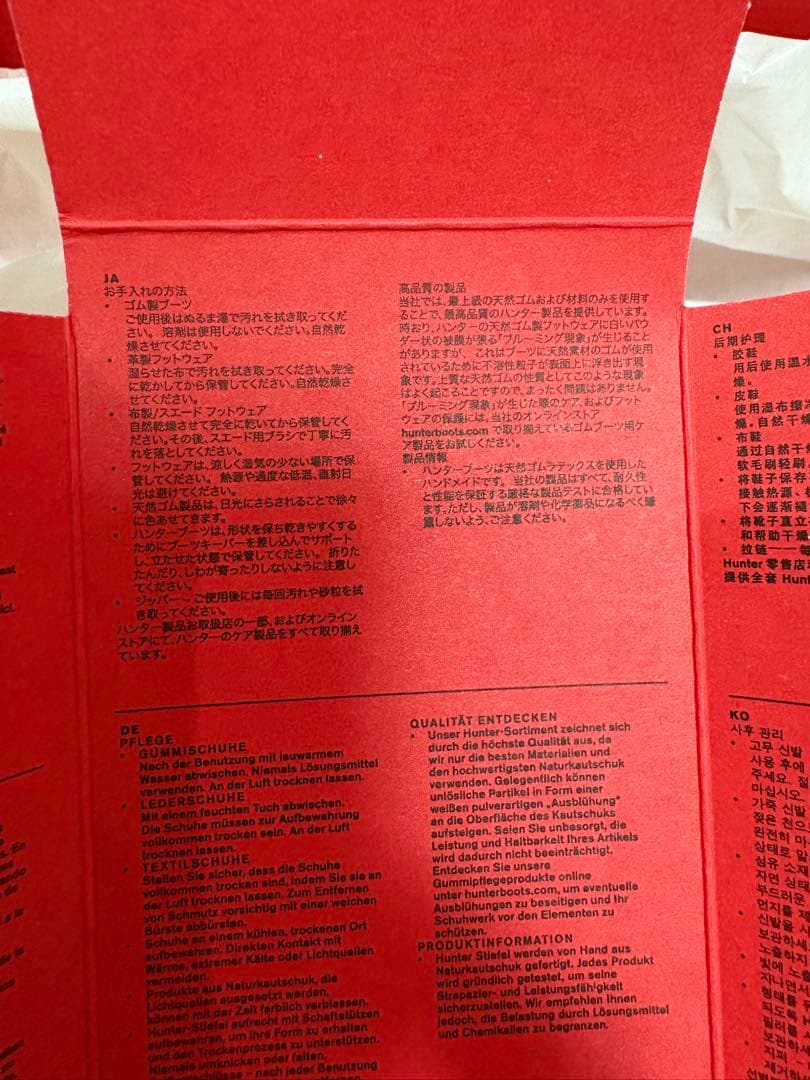 JA
お手入れの方法
• ゴム製ブーツ
ご使用後はぬるま湯で汚れを拭き取ってくだ
さい。 溶剤は使用しないでください。自然乾
燥させてください。
• 革製フットウェア
湿らせた布で汚れを拭き取ってください。完全
に乾かしてから保管してください。自然乾燥さ
せてください。
• 布製/スエード フットウェア
自然乾燥させて完全に乾いてから保管してく
ださい。その後、スエード用ブラシで丁寧に汚
れを落としてください。
• フットウェアは、涼しく湿気の少ない場所で保
管してください。 熱源や過度な低温、直射日
光は避けてください。
• 天然ゴム製品は、日光にさらされることで徐々
に色あせてきます。
• ハンターブーツは、形状を保ち乾きやすくする
ためにブーツキーパーを差し込んでサポート
し、立たせた状態で保管してください。 折りた
たんだり、しわが寄ったりしないように注意し
てください。
• ジッパー – ご使用後には毎回汚れや砂粒を拭
き取ってください。
ハンター製品お取扱店の一部、およびオンライン
ストアにて、ハンターのケア製品をすべて取り揃え
ています。
高品質の製品
当社では、最上級の天然ゴムおよび材料のみを使用す
ることで、最高品質のハンター製品を提供しています。
時おり、ハンターの天然ゴム製フットウェアに白いパウ
ダー状の被膜が張る「ブルーミング現象」が生じること
がありますが、 これはブーツに天然素材のゴムが使用
されているために不溶性粒子が表面上に浮き出す現
象です。上質な天然ゴムの性質としてこのような現象
はよく起こることですので、まったく問題はありません。
「ブルーミング現象」が生じた際のケア、およびフット
ウェアの保護には、当社のオンラインストア
hunterboots.com で取り揃えているゴムブーツ用ケ
ア製品をお試しください。
製品情報
• ハンターブーツは天然ゴムラテックスを使用した
ハンドメイドです。 当社の製品はすべて、耐久性
と性能を保証する厳格な製品テストに合格してい
ます。ただし、製品が溶剤や化学薬品になるべく曝
露しないよう、ご注意ください。
DE
PFLEGE
• GUMMISCHUHE
Nach der Benutzung mit lauwarmem
Wasser abwischen. Niemals Lösungsmittel
verwenden. An der Luft trocknen lassen.
• LEDERSCHUHE
Mit einem feuchten Tuch abwischen.
Die Schuhe müssen zur Aufbewahrung
vollkommen trocken sein. An der Luft
trocknen lassen.
• TEXTILSCHUHE
Stellen Sie sicher, dass die Schuhe
vollkommen trocken sind, indem Sie sie an
der Luft trocknen lassen. Zum Entfernen
von Schmutz vorsichtig mit einer weichen
Bürste abbürsten.
• Schuhe an einem kühlen, trockenen Ort
aufbewahren. Direkten Kontakt mit
Wärme, extremer Kälte oder Lichtquellen
vermeiden.
• Produkte aus Naturkautschuk, die
Lichtquellen ausgesetzt werden,
können mit der Zeit farblich verblassen.
• Hunter-Stiefel aufrecht mit Schaftstützen
aufbewahren, um ihre Form zu erhalten
und den Trockenprozess zu unterstützen.
Niemals umknicken oder falten.
– nach jeder Benutzung
QUALITÄT ENTDECKEN
• Unser Hunter-Sortiment zeichnet sich
durch die höchste Qualität aus, da
wir nur die besten Materialien und
den hochwertigsten Naturkautschuk
verwenden. Gelegentlich können
unlösliche Partikel in Form einer
weißen pulverartigen „Ausblühung“
an die Oberfläche des Kautschuks
aufsteigen. Seien Sie unbesorgt, die
Leistung und Haltbarkeit Ihres Artikels
wird dadurch nicht beeinträchtigt.
Entdecken Sie unsere
Gummipflegeprodukte online
unter hunterboots.com, um eventuelle
Ausblühungen zu beseitigen und Ihr
Schuhwerk vor den Elementen zu
schützen.
PRODUKTINFORMATION
• Hunter Stiefel werden von Hand aus
Naturkautschuk gefertigt. Jedes Produkt
wird gründlich getestet, um seine
Strapazier- und Leistungsfähigkeit
sicherzustellen. Wir empfehlen Ihnen
jedoch, die Belastung durch Lösungsmittel
und Chemikalien zu begrenzen.
CH
后期护理
• 胶鞋
用后使用温水
燥。
• 皮鞋
使用湿布擦
燥。自然干燥
• 布鞋
通过自然干
软毛刷轻刷
• 将鞋子保存
接触热源、
下会逐渐褪
• 将靴子直立
和帮助干燥
• 拉链——每
Hunter 零售店
提供全套 Hunt
KO
사후 관리
• 고무 신발
사용 후에
주세요. 절
마십시오
• 가죽 신발
젖은 천으
완전히 마
상태로 말
• 섬유 소재
자연 상태
부드러운
먼지를 제
• 신발을 시
보관하세
노출하지
• 빛에 노
지나면서
형태를
되도록 H
필러를
보관하세
• 지퍼 –
제거하